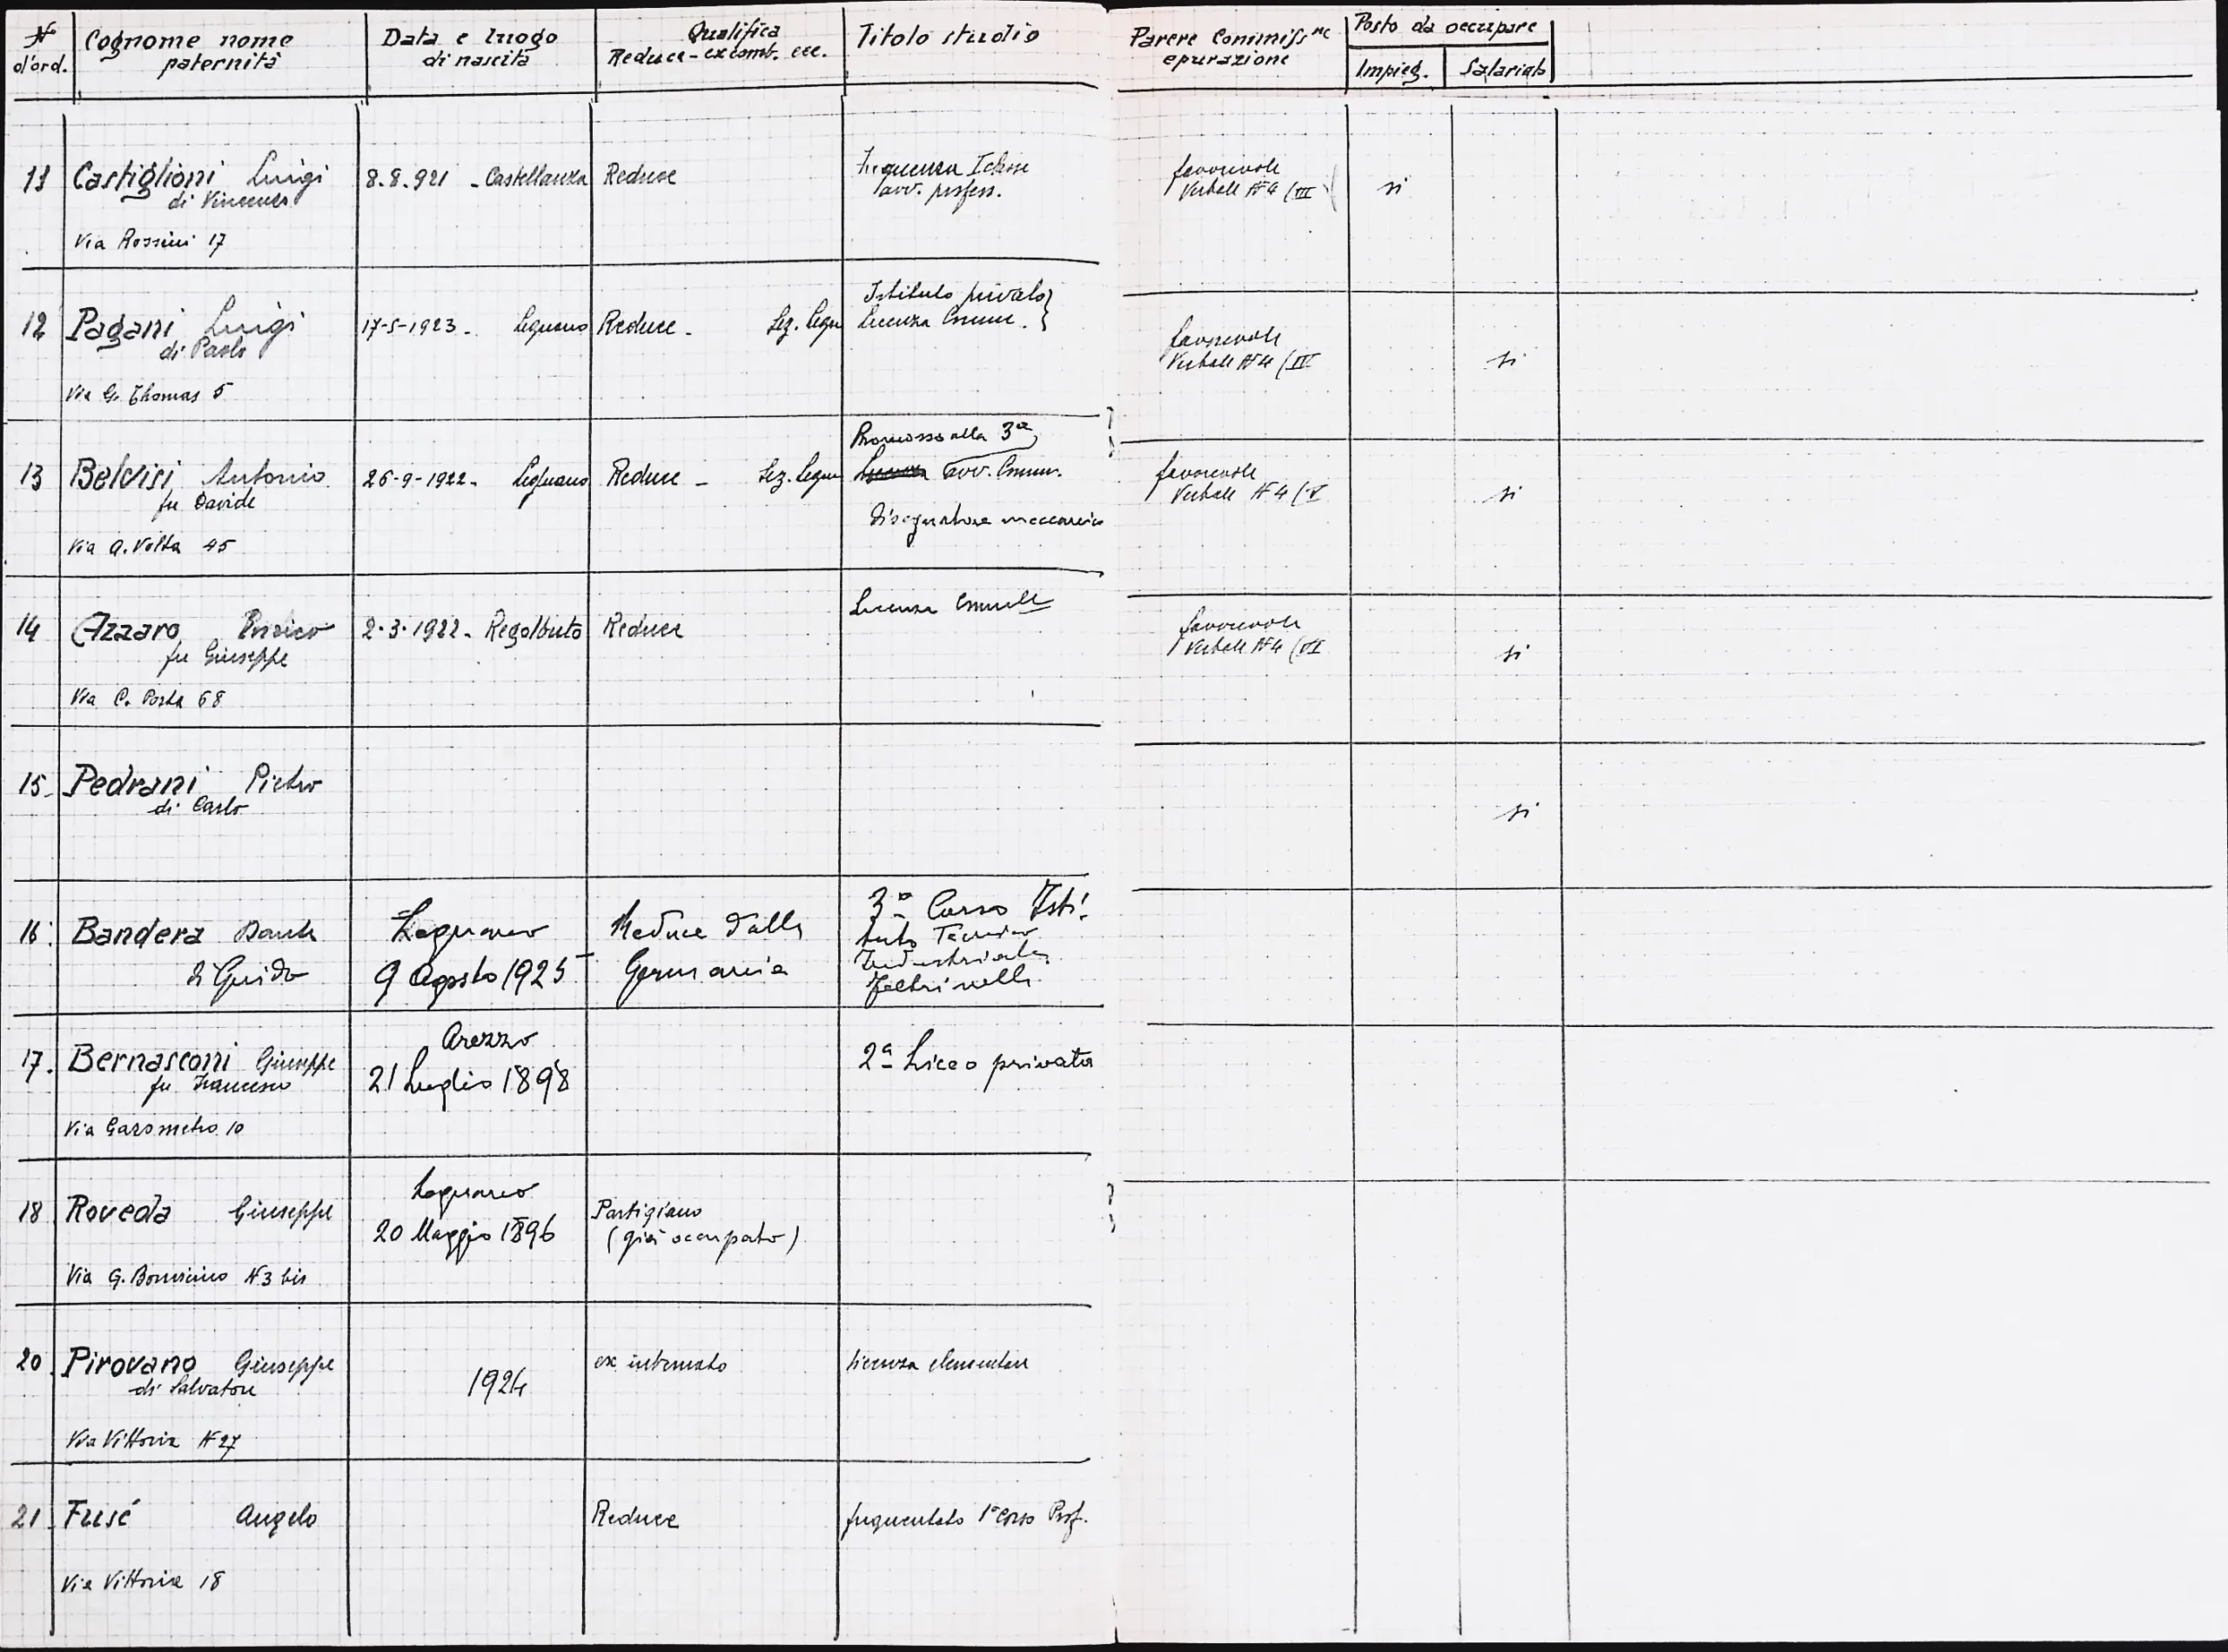 N° d'ord.
Cognome nome
paternità
Data e luogo
di nascita
Qualifica
Reduce - ex comb. ecc.
Titolo studio
Parere Commiss.ne
epurazione
Posto da occupare
Impieg.
Salariato
11 Castiglioni Luigi 8.8.921 - Castellanza Reduce
di Vincenzo
Via Rossini 17
Frequenza I classe
avv. profess.
favorevole
Verbale N° 4 / III
si
12 Pagani Luigi 17-5-1923 - Legnano Reduce - Sez. Legn
di Paolo
Via G. Thomas 5
Istituto privato
Licenza Comm.
favorevole
Verbale N° 4 / IV
si
13 Belvisi Antonio 26-9-1922 - Legnano Reduce - Sez. Legn
fu Davide
Via A. Volta 45
Promosso alla 3a
avv. Comm.
Disegnatore meccanico
favorevole
Verbale N° 4 / V
si
14 Azzaro 2.3.1922 - Regalbuto Reduce
fu Giuseppe
Via C. Porta 68
Licenza
favorevole
Verbale N° 4 / VI
si
15 Pedrani Pietro
di Carlo
si
16 Bandera Dante
di Guido
Legnano
9 Agosto 1925
Reduce dalla
Germania
3° Corso Isti-
tuto Tecnico
Industriale
Feltrinelli
17. Bernasconi Giuseppe
fu Francesco
Via Gazometro 10
Arezzo
21 Luglio 1898
2a Liceo privato
18 Roveda Giuseppe
Via G. Bonsicino N° 3 bis
Legnano
20 Maggio 1896
Partigiano
(già occupato)
20. Pirovano Giuseppe
di Salvatore
Via Vittoria N° 27
1924
ex internato
licenza elementare
21. Fusé Angelo
Via Vittoria 18
Reduce
frequentato 1° corso Prof.